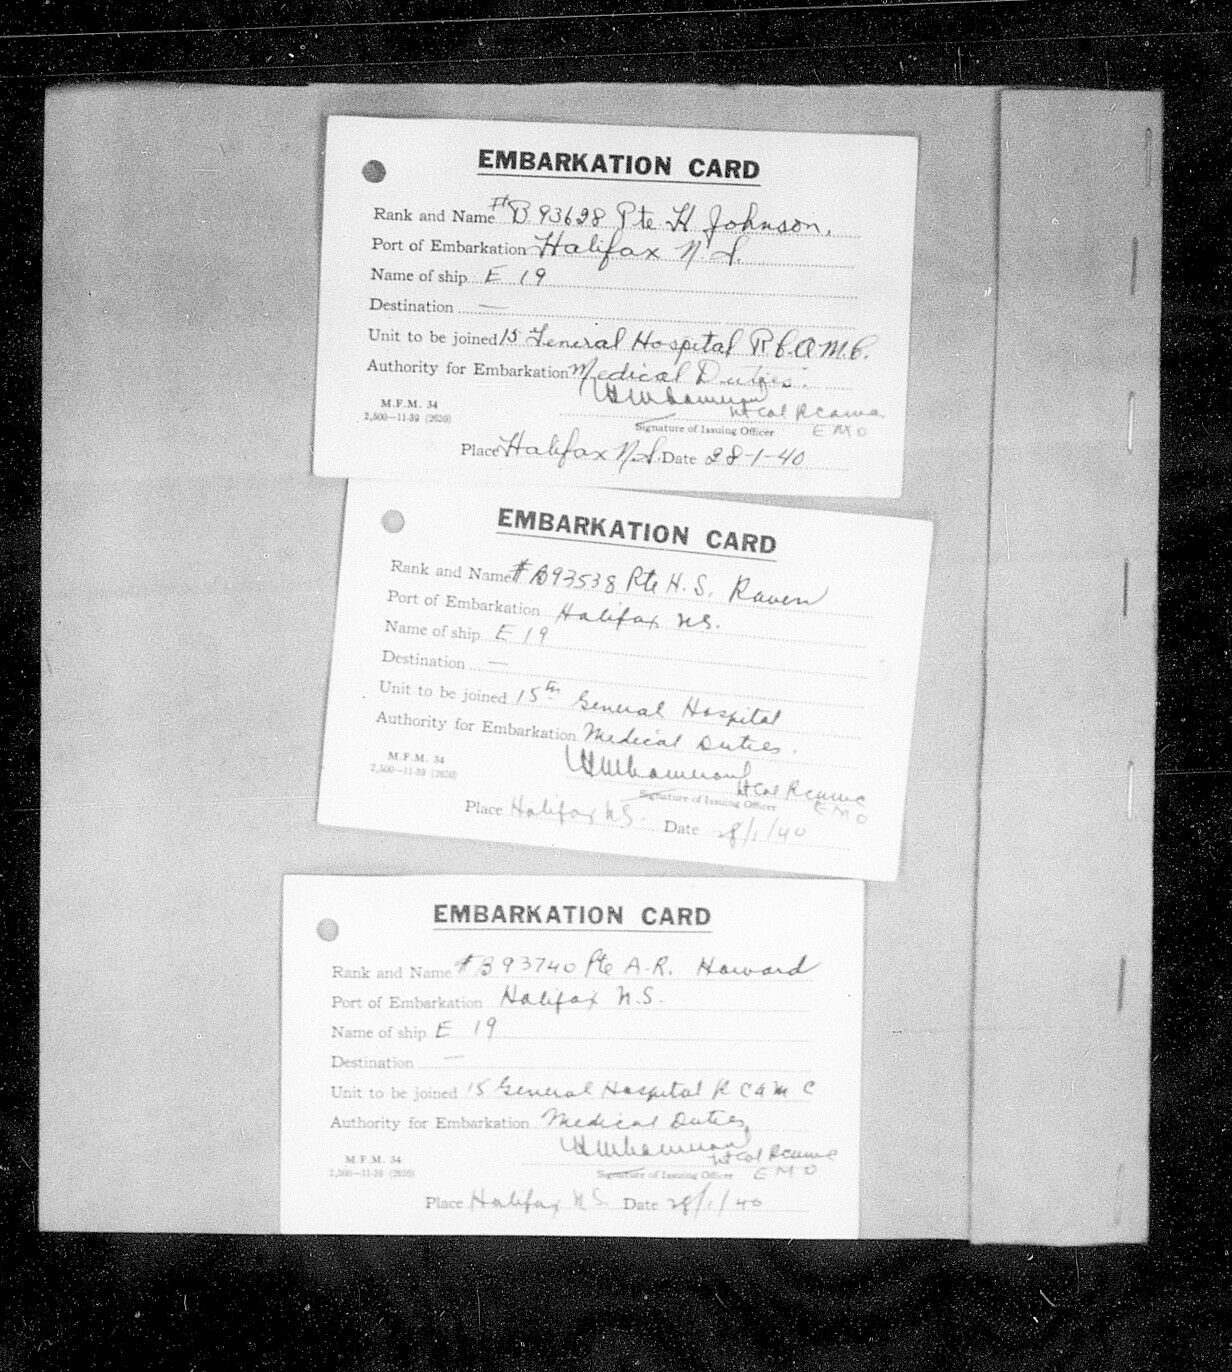 EMBARKATION CARD
Rank and Name #B 93628 Pte H Johnson.
Port of Embarkation Halifax N.S.
Name of ship E 19
Destination —
Unit to be joined 15 General Hospital R.C.A.M.C.
Authority for Embarkation Medical Duties.
Lt Col RCAMC
M.F.M. 34
2,500—11-39 (2620)
Signature of Issuing Officer EMO
Place Halifax N.S. Date 28-1-40
EMBARKATION CARD
Rank and Name #B93538 Pte H. S. Raven
Port of Embarkation Halifax NS.
Name of ship E 19
Destination —
Unit to be joined 15th General Hospital
Authority for Embarkation Medical Duties.
M.F.M. 34
2,500—11-39 (2620)
Lt Col RCAMC
Signature of Issuing Officer EMO
Place Halifax NS. Date 28/1/40
EMBARKATION CARD
Rank and Name #B93740 Pte A.R. Howard
Port of Embarkation Halifax N.S.
Name of ship E 19
Destination —
Unit to be joined 15 General Hospital R C A M C
Authority for Embarkation Medical Duties
Lt Col RCAMC
M.F.M. 34
2,500—11-39 (2620)
Signature of Issuing Officer EMO
Place Halifax NS. Date 28/1/40